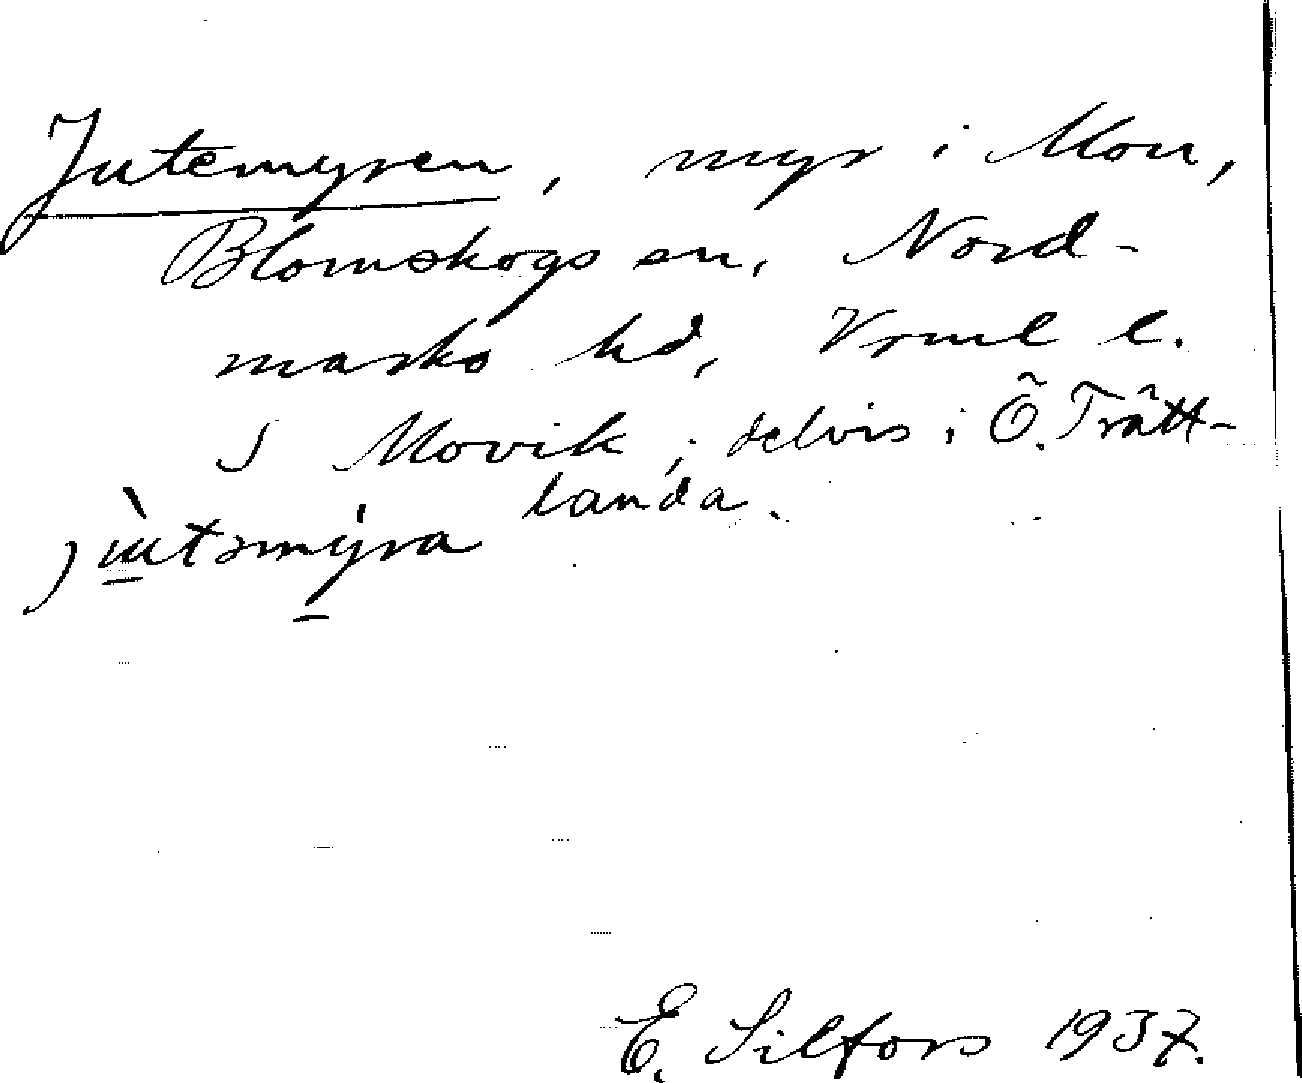 Jutemyren, myr i Mon,
Blomskogs sn, Nord-
marks hd, Vrml l.
I Movik; delvis i Ö. Trätt-
landa.
jùtəmýra
E. Silfors 1937.